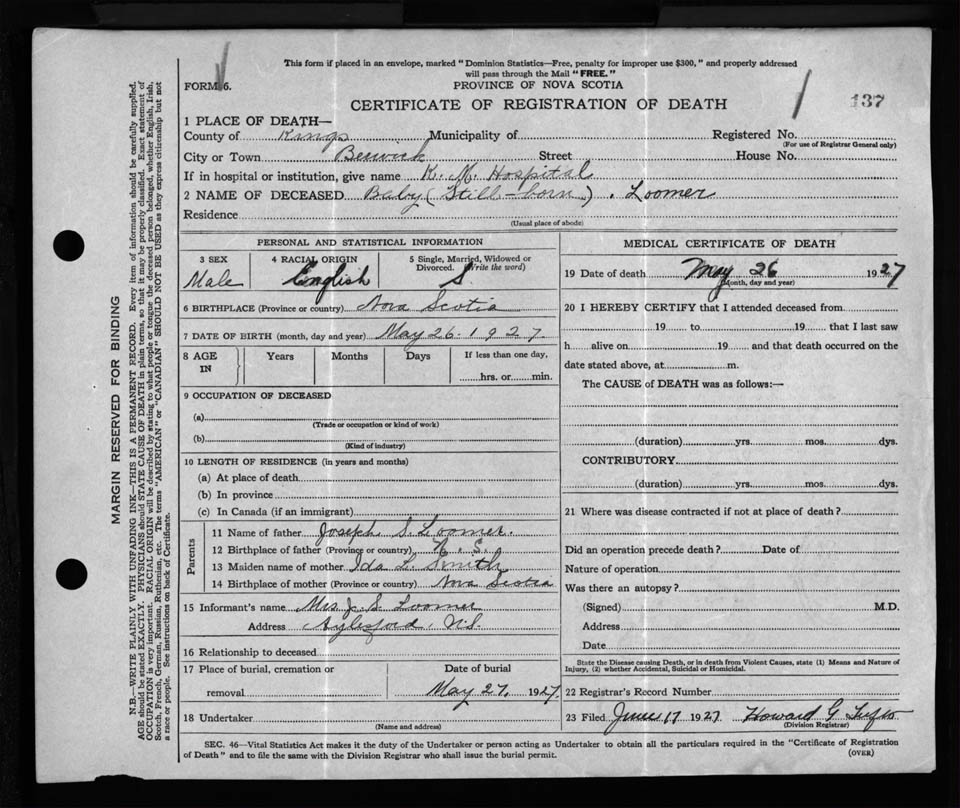 This form if placed in an envelope, marked "Dominion Statistics—Free, penalty for improper use $300," and properly addressed
will pass through the Mail "FREE."
FORM 6.
PROVINCE OF NOVA SCOTIA
137
CERTIFICATE OF REGISTRATION OF DEATH
1 PLACE OF DEATH—
County of Kings Municipality of Registered No.
(For use of Registrar General only)
City or Town Berwick Street House No.
If in hospital or institution, give name K. M. Hospital
2 NAME OF DECEASED Baby (Still-born). Loomer
Residence
(Usual place of abode)
PERSONAL AND STATISTICAL INFORMATION
3 SEX 4 RACIAL ORIGIN 5 Single, Married, Widowed or
Divorced. (Write the word)
Male English S.
6 BIRTHPLACE (Province or country) Nova Scotia
7 DATE OF BIRTH (month, day and year) May 26. 1927.
8 AGE IN Years Months Days If less than one day,
hrs. or min.
9 OCCUPATION OF DECEASED
(a)
(Trade or occupation or kind of work)
(b)
(Kind of industry)
10 LENGTH OF RESIDENCE (in years and months)
(a) At place of death
(b) In province
(c) In Canada (if an immigrant)
Parents
11 Name of father Joseph S. Loomer.
12 Birthplace of father (Province or country) N. S.
13 Maiden name of mother Ida L. Smith
14 Birthplace of mother (Province or country) Nova Scotia
15 Informant's name Mrs. J. S. Loomer
Address Aylesford, N.S.
16 Relationship to deceased
17 Place of burial, cremation or Date of burial
removal May 27, 1927.
18 Undertaker
(Name and address)
MEDICAL CERTIFICATE OF DEATH
19 Date of death May 26 1927
(Month, day and year)
20 I HEREBY CERTIFY that I attended deceased from
19 to 19 that I last saw
h alive on 19 and that death occurred on the
date stated above, at m.
The CAUSE of DEATH was as follows:—
(duration) yrs. mos. dys.
CONTRIBUTORY
(duration) yrs. mos. dys.
21 Where was disease contracted if not at place of death?
Did an operation precede death? Date of
Nature of operation
Was there an autopsy?
(Signed) M.D.
Address
Date
State the Disease causing Death, or in death from Violent Causes, state (1) Means and Nature of
Injury, (2) whether Accidental, Suicidal or Homicidal.
22 Registrar's Record Number
23 Filed June 17 1927 Howard G
(Division Registrar)
SEC. 46—Vital Statistics Act makes it the duty of the Undertaker or person acting as Undertaker to obtain all the particulars required in the "Certificate of Registration
of Death" and to file the same with the Division Registrar who shall issue the burial permit.
(OVER)
MARGIN RESERVED FOR BINDING
N.B.—WRITE PLAINLY WITH UNFADING INK—THIS IS A PERMANENT RECORD. Every item of information should be carefully supplied.
AGE should be stated EXACTLY. PHYSICIANS should STATE CAUSE OF DEATH in plain terms, so that it may be properly classified. Exact statement of
OCCUPATION is very important. RACIAL ORIGIN will be described by stating to what people or tongue the deceased person belonged, whether English, Irish,
Scotch, French, German, Russian, Ruthenian, etc. The terms "AMERICAN" or "CANADIAN" SHOULD NOT BE USED as they express citizenship but not
a race or people. See instructions on back of Certificate.